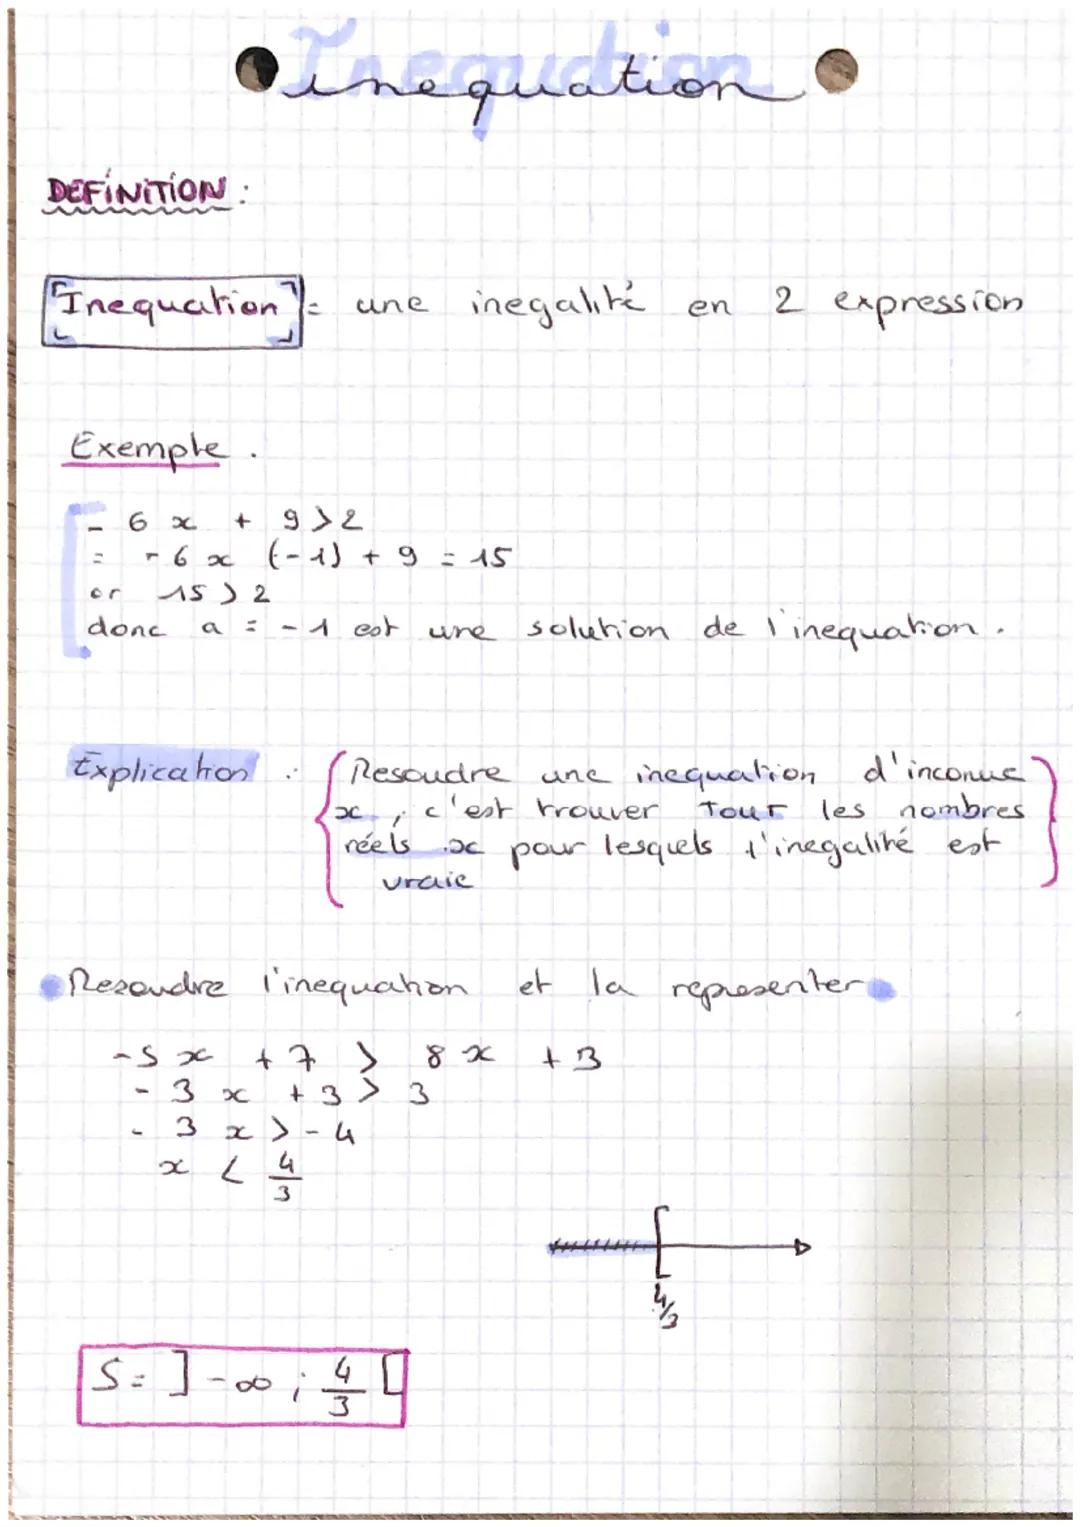 Inequation
inequation
DEFINITION :
Inequation = une inegalité en 2 expression
Exemple .
- 6 x + 9 > 2
= - 6 x (-1) + 9 = 15
or 15 > 2
donc a = -1 est une solution de l'inequation .
Explication : Resoudre une inequation d'inconue
x , c'est trouver TOUT les nombres
réels x pour lesquels l'inegalité est
vraie
Resoudre l'inequation et la representer
-5 x + 7 > 8 x + 3
- 3 x + 3 > 3
- 3 x > - 4
x < 4/3
4/3
S = ] -∞ ; 4/3 [